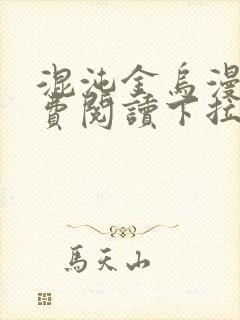 混沌金烏漫
費閱讀下拉
馬天山